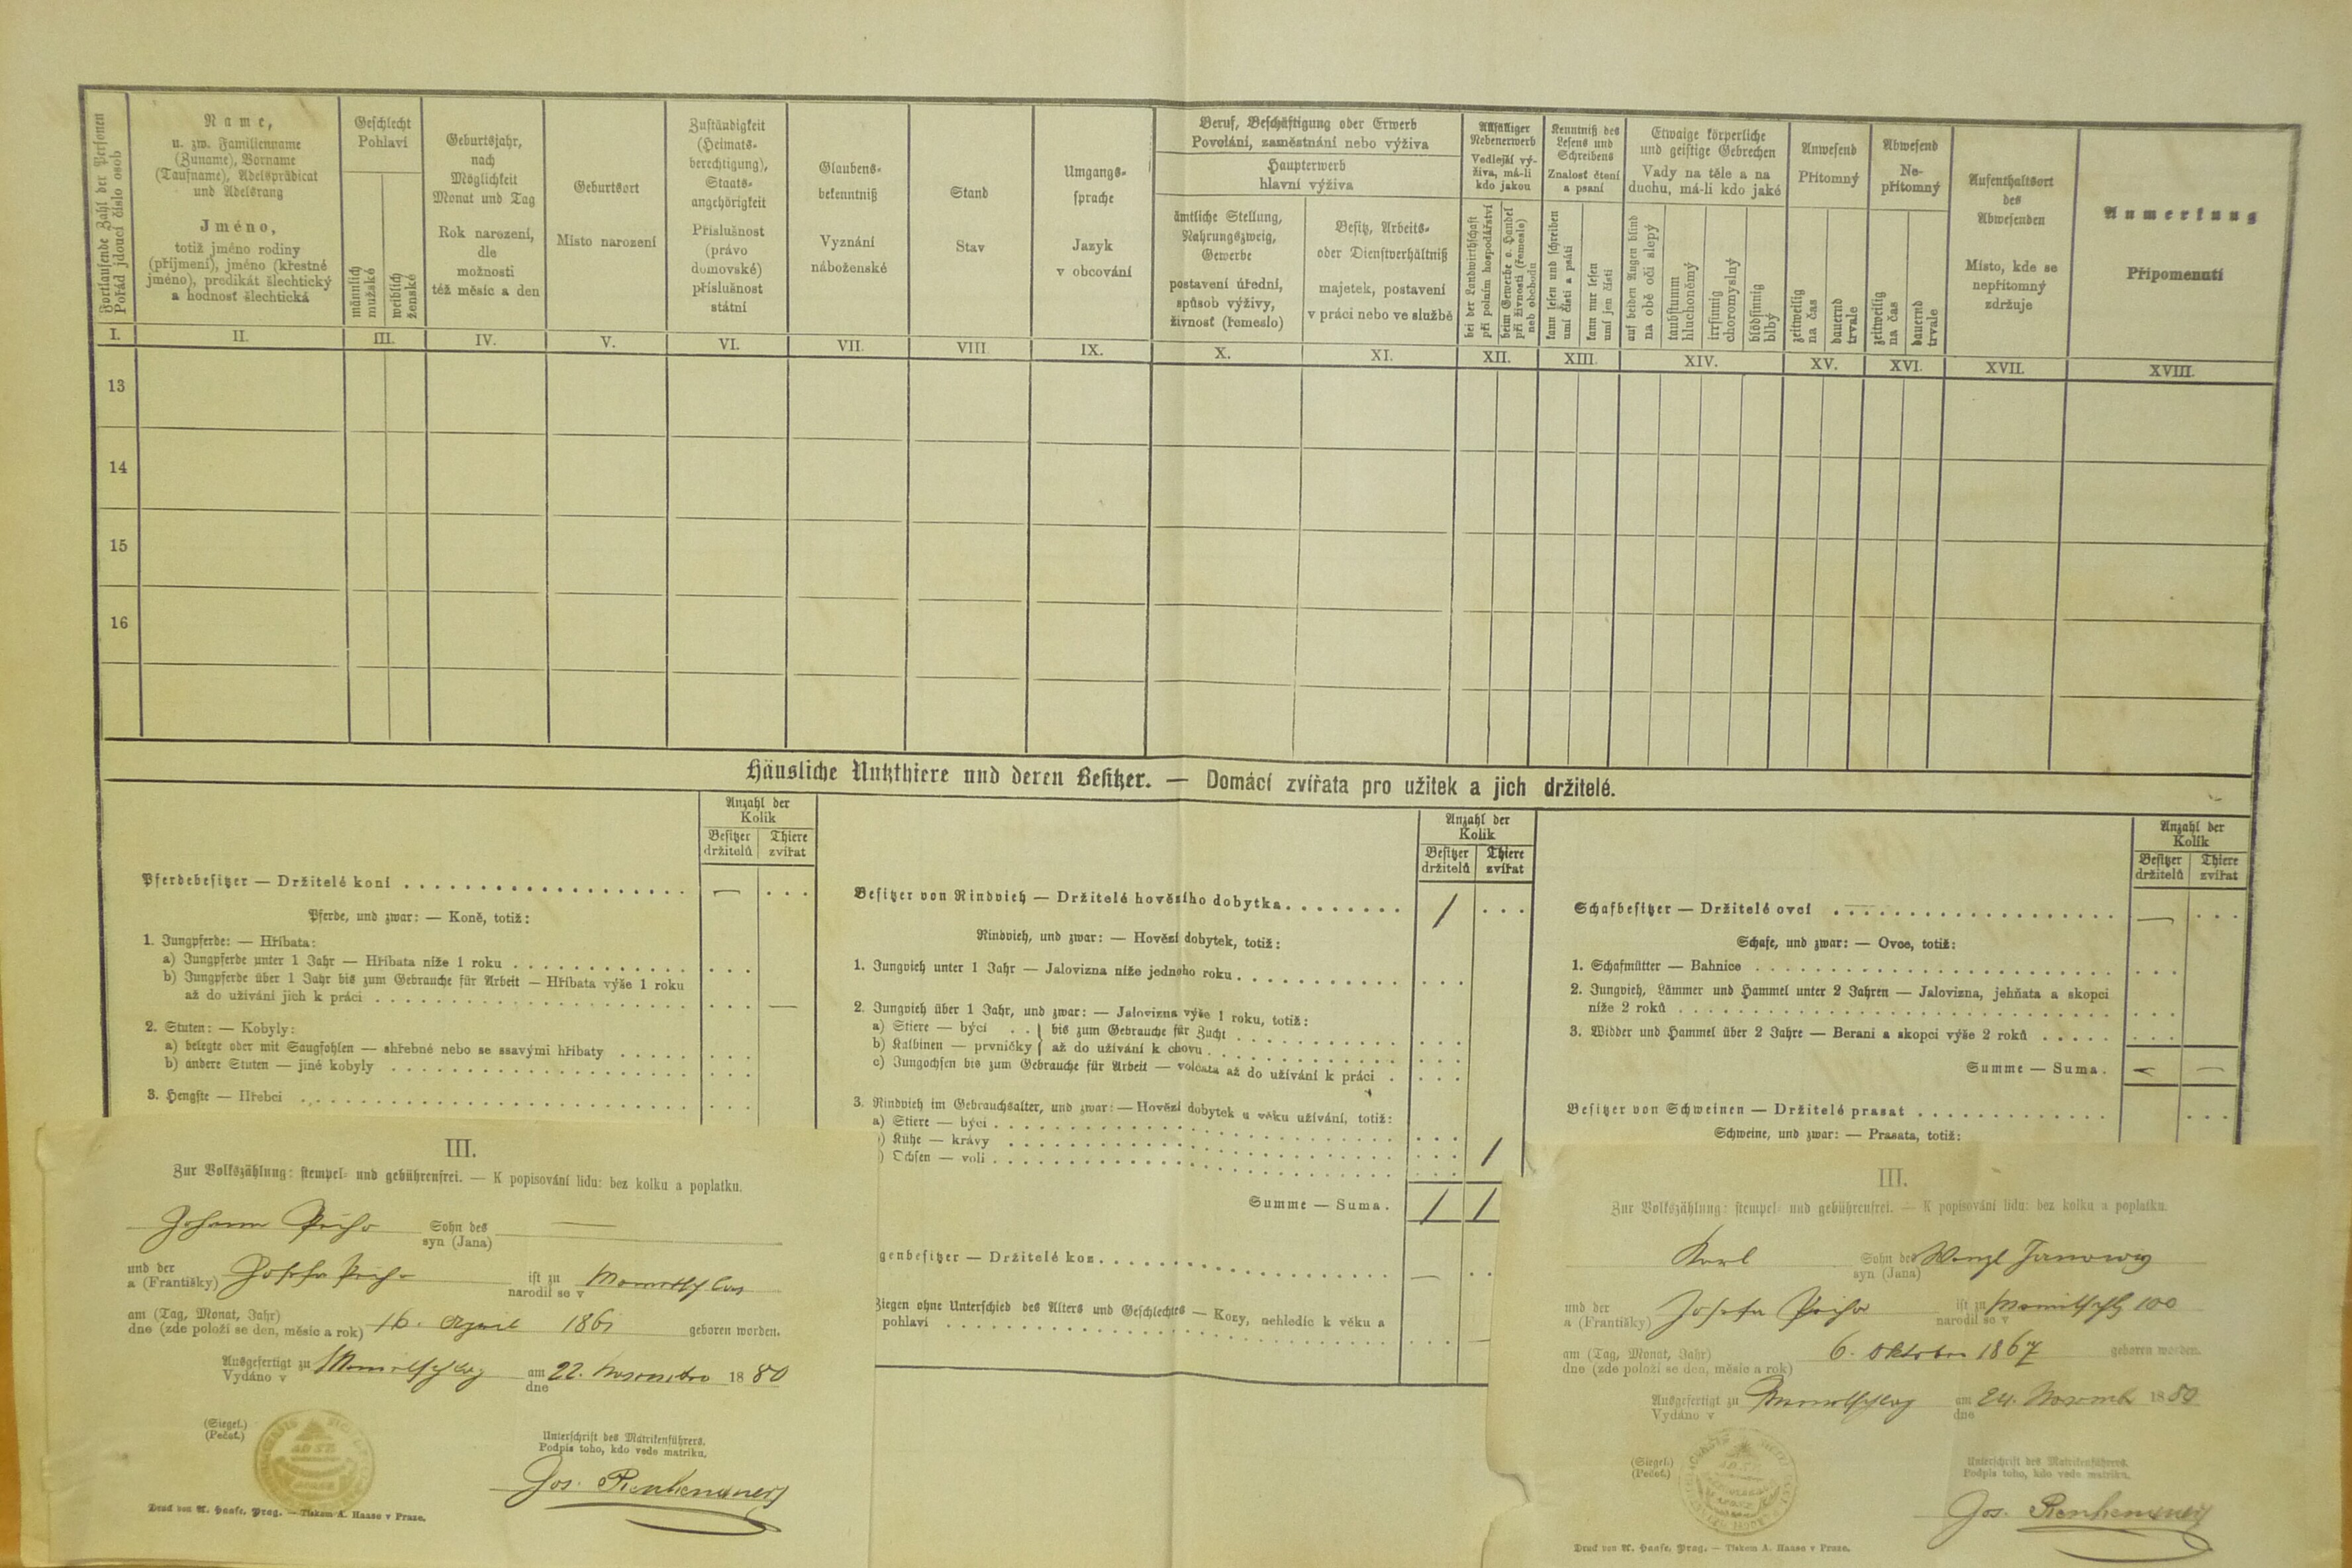 Fortlaufende Zahl der Personen
Pořád jdoucí číslo osob
I.
Name,
u. zw. Familienname
(Zuname), Vorname
(Taufname), Adelsprädicat
und Adelsrang
Jméno,
totiž jméno rodiny
(příjmení), jméno (křestné
jméno), predikát šlechtický
a hodnosť šlechtická
II.
Geschlecht
Pohlaví
männlich
mužské
weiblich
ženské
III.
Geburtsjahr,
nach
Möglichkeit
Monat und Tag
Rok narození,
dle
možnosti
též měsíc a den
IV.
Geburtsort
Místo narození
V.
Zuständigkeit
(Heimats-
berechtigung),
Staats-
angehörigkeit
Příslušnost
(právo
domovské)
příslušnost
státní
VI.
Glaubens-
bekenntniß
Vyznání
náboženské
VII.
Stand
Stav
VIII.
Umgangs-
sprache
Jazyk
v obcování
IX.
Beruf, Beschäftigung oder Erwerb
Povolání, zaměstnání nebo výživa
Haupterwerb
hlavní výživa
ämtliche Stellung,
Nahrungszweig,
Gewerbe
postavení úřední,
spůsob výživy,
živnosť (řemeslo)
X.
Besitz, Arbeits-
oder Dienstverhältniß
majetek, postavení
v práci nebo ve službě
XI.
Allfälliger
Nebenerwerb
Vedlejší vý-
živa, má-li
kdo jakou
bei der Landwirthschaft
při polním hospodářství
beim Gewerbe o. Handel
při živnosti (řemesle)
neb obchodu
XII.
Kenntniß des
Lesens und
Schreibens
Znalosť čtení
a psaní
kann lesen und schreiben
umí čísti a psáti
kann nur lesen
umí jen čísti
XIII.
Etwaige körperliche
und geistige Gebrechen
Vady na těle a na
duchu, má-li kdo jaké
auf beiden Augen blind
na obě oči slepý
taubstumm
hluchoněmý
irrsinnig
choromyslný
blödsinnig
blbý
XIV.
Anwesend
Přítomný
zeitweilig
na čas
dauernd
trvale
XV.
Abwesend
Ne-
přítomný
zeitweilig
na čas
dauernd
trvale
XVI.
Aufenthaltsort
des
Abwesenden
Místo, kde se
nepřítomný
zdržuje
XVII.
Anmerkung
Připomenutí
XVIII.
13
14
15
16
Häusliche Nutzthiere und deren Besitzer. — Domácí zvířata pro užitek a jich držitelé.
Anzahl der
Kolik
Besitzer Thiere
držitelů zvířat
Pferdebesitzer — Držitelé koní —
Pferde, und zwar: — Koně, totiž:
1. Jungpferde: — Hříbata:
a) Jungpferde unter 1 Jahr — Hříbata níže 1 roku
b) Jungpferde über 1 Jahr bis zum Gebrauche für Arbeit — Hříbata výše 1 roku
až do užívání jich k práci —
2. Stuten: — Kobyly:
a) belegte oder mit Saugfohlen — shřebné nebo se ssavými hříbaty
b) andere Stuten — jiné kobyly
3. Hengste — Hřebci
Anzahl der
Kolik
Besitzer Thiere
držitelů zvířat
Besitzer von Rindvieh — Držitelé hovězího dobytka 1
Rindvieh, und zwar: — Hovězí dobytek, totiž:
1. Jungvieh unter 1 Jahr — Jalovizna níže jednoho roku
2. Jungvieh über 1 Jahr, und zwar: — Jalovizna výše 1 roku, totiž:
a) Stiere — býci } bis zum Gebrauche für Zucht
b) Kalbinen — prvničky } až do užívání k chovu
c) Jungochsen bis zum Gebrauche für Arbeit — volčata až do užívání k práci
3. Rindvieh im Gebrauchsalter, und zwar: — Hovězí dobytek u věku užívání, totiž:
a) Stiere — býci
) Kühe — krávy 1
) Ochsen — voli
Summe — Suma. 1 1
genbesitzer — Držitelé koz —
Ziegen ohne Unterschied des Alters und Geschlechtes — Kozy, nehledíc k věku a
pohlaví —
Anzahl der
Kolik
Besitzer Thiere
držitelů zvířat
Schafbesitzer — Držitelé ovcí —
Schafe, und zwar: — Ovce, totiž:
1. Schafmütter — Bahnice
2. Jungvieh, Lämmer und Hammel unter 2 Jahren — Jalovizna, jehňata a skopci
níže 2 roků
3. Widder und Hammel über 2 Jahre — Berani a skopci výše 2 roků
Summe — Suma. — —
Besitzer von Schweinen — Držitelé prasat
Schweine, und zwar: — Prasata, totiž:
III.
Zur Volkszählung: stempel- und gebührenfrei. — K popisování lidu: bez kolku a poplatku.
Johann Sohn des —
syn (Jana)
und der Josefa ist zu
a (Františky) narodil se v
am (Tag, Monat, Jahr) 16. April 1861
dne (zde položí se den, měsíc a rok) geboren worden.
Ausgefertigt zu am 22. 1880
Vydáno v dne
(Siegel.)
(Pečeť.)
Unterschrift des Matrikenführers.
Podpis toho, kdo vede matriku.
Jos.
Druck von A. Haase, Prag. — Tiskem A. Haase v Praze.
III.
Zur Volkszählung: stempel- und gebührenfrei. — K popisování lidu: bez kolku a poplatku.
Karl Sohn des Wenzl
syn (Jana)
und der Josefa ist zu 100
a (Františky) narodil se v
am (Tag, Monat, Jahr) 6. Oktober 1867 geboren worden.
dne (zde položí se den, měsíc a rok)
Ausgefertigt zu am 24. 1880
Vydáno v dne
(Siegel.)
(Pečeť.)
Unterschrift des Matrikenführers.
Podpis toho, kdo vede matriku.
Jos.
Druck von A. Haase, Prag. — Tiskem A. Haase v Praze.